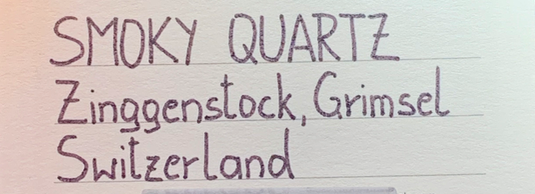 SMOKY QUARTZ
Zinggenstock, Grimsel
Switzerland